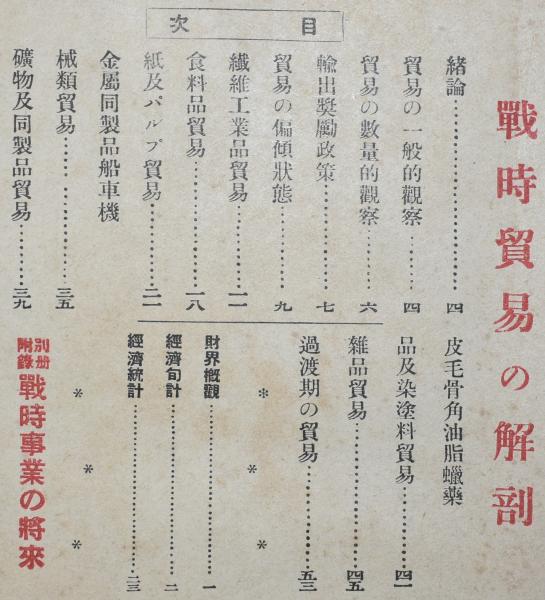 戰時貿易の解剖
目次
緒論……………………四
貿易の一般的觀察………四
貿易の數量的觀察………六
輸出奬勵政策……………七
貿易の偏傾狀態…………九
纖維工業品貿易…………一一
食料品貿易………………一八
紙及パルプ貿易…………二一
金屬同製品船車機
械類貿易…………………三五
礦物及同製品貿易………三九
皮毛骨角油脂蠟藥
品及染塗料貿易…………四一
雜品貿易…………………四五
過渡期の貿易……………五三
* * *
財界槪觀…………………一
經濟旬計…………………二
經濟統計…………………二三
* * *
別册附錄 戰時事業の將來